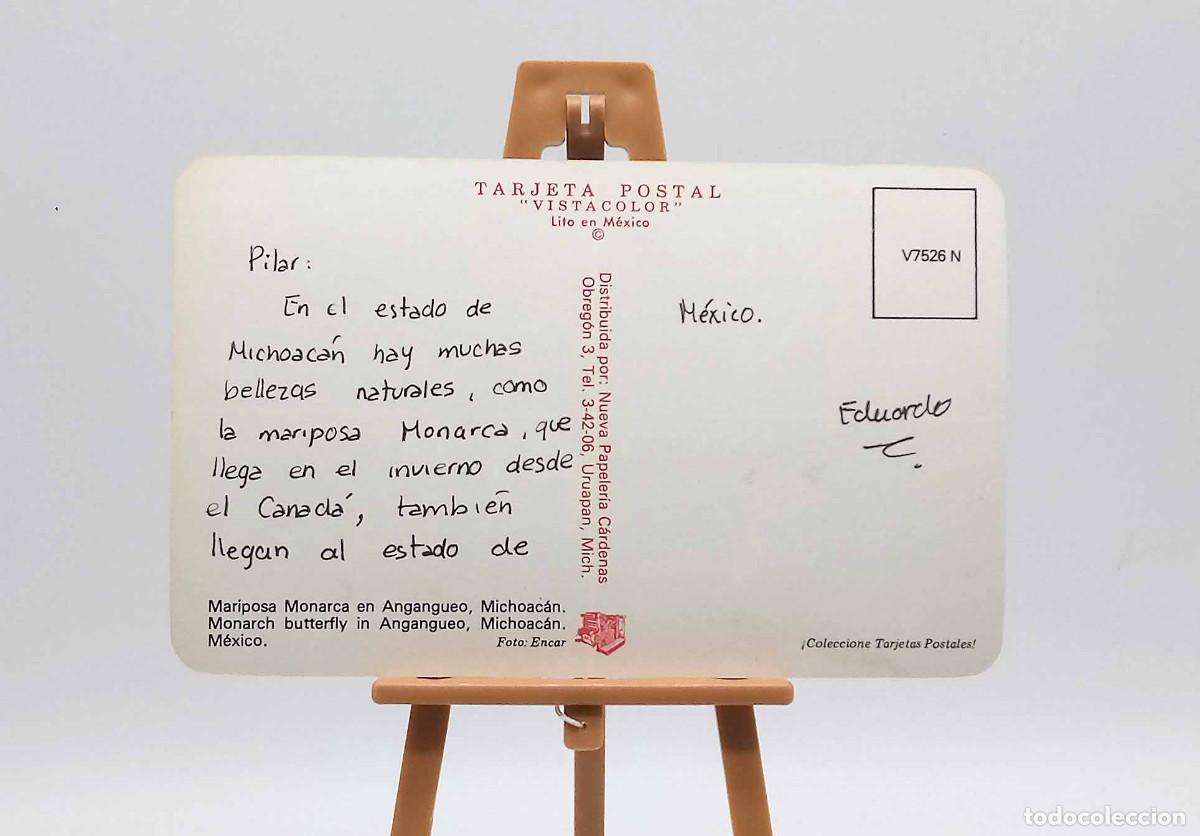 TARJETA POSTAL
"VISTACOLOR"
Lito en México
©
V7526 N
Pilar:
En el estado de
Michoacán hay muchas
bellezas naturales, como
la mariposa Monarca, que
llega en el invierno desde
el Canadá, también
llegan al estado de
México.
Eduardo
Distribuida por: Nueva Papelería Cárdenas
Obregón 3, Tel. 3-42-06, Uruapan, Mich.
Mariposa Monarca en Angangueo, Michoacán.
Monarch butterfly in Angangueo, Michoacán.
México.
Foto: Encar
¡Coleccione Tarjetas Postales!
todocoleccion